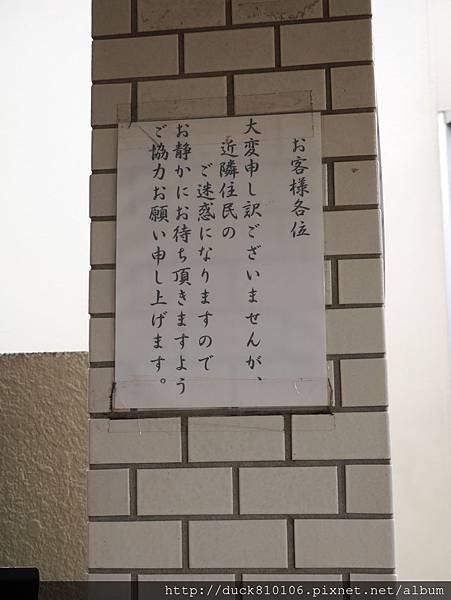 お客様各位
大変申し訳ございませんが、
近隣住民の
ご迷惑になりますので
お静かにお待ち頂きますよう
ご協力お願い申し上げます。
http://duck810106.pixnet.net/album